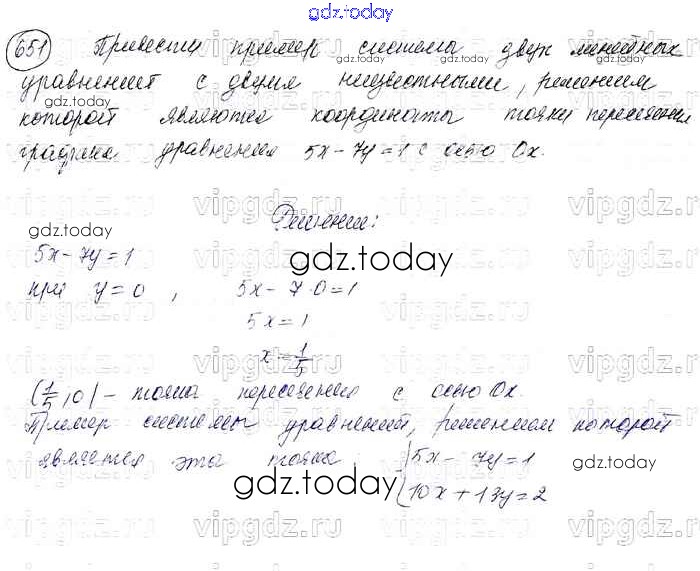 gdz.today
651 Привести пример системы двух линейных
уравнений с двумя неизвестными, решением
которой являются координаты точки пересечения
графика уравнения 5x-7y=1 с осью Ox.
Решение:
5x-7y=1
при y=0, 5x-7·0=1
5x=1
x=1/5
(1/5, 0) - точка пересечения с осью Ox.
Пример системы уравнений, решением которой
является эта точка {5x-7y=1
{10x+13y=2
gdz.today
gdz.today
gdz.today
gdz.today
gdz.today
gdz.today
gdz.today
vipgdz.ru